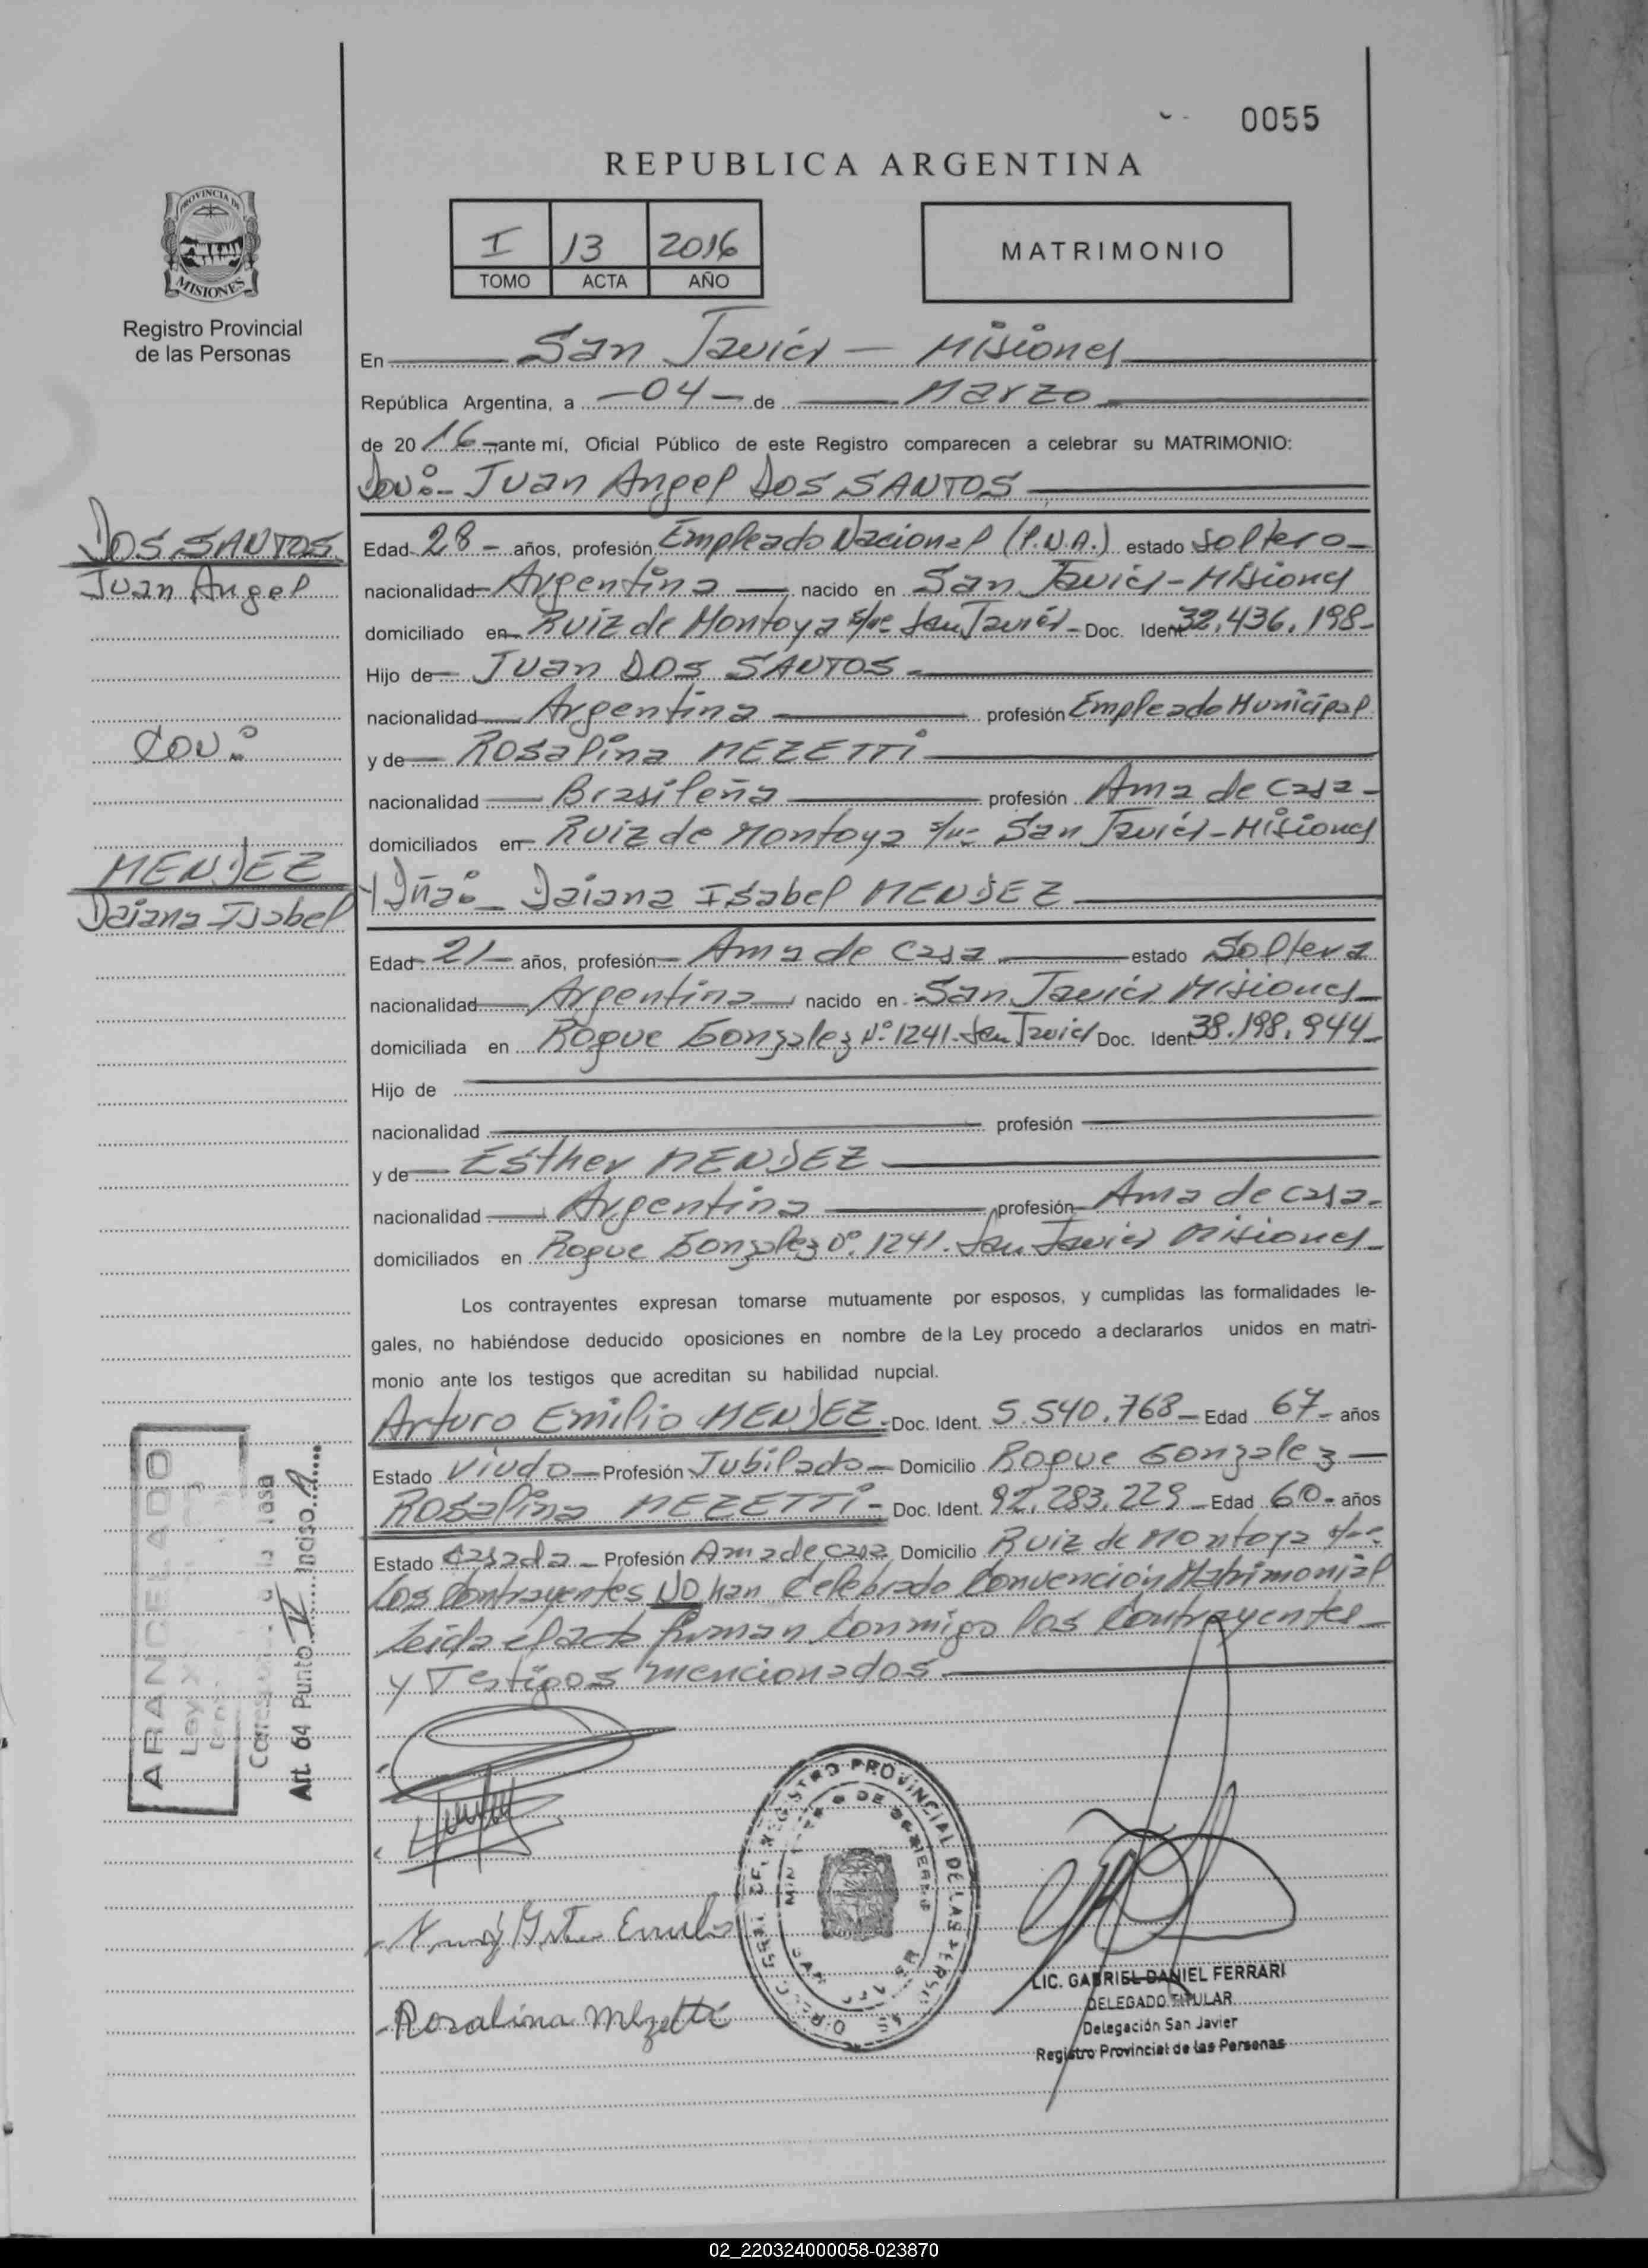 0055
REPUBLICA ARGENTINA
PROVINCIA DE
MISIONES
Registro Provincial
de las Personas
I 13 2016
TOMO ACTA AÑO
MATRIMONIO
En San Javier - Misiones
República Argentina, a -04- de Marzo
de 2016 ante mí, Oficial Público de este Registro comparecen a celebrar su MATRIMONIO:
Juan Angel DOS SANTOS
DOS SANTOS
Juan Angel
Edad 28 - años, profesión Empleado Nacional (P.N.A.) estado Soltero-
nacionalidad Argentina nacido en San Javier - Misiones
domiciliado en Ruiz de Montoya s/n San Javier - Doc. Ident 32.436.198-
Hijo de Juan DOS SANTOS
nacionalidad Argentina profesión Empleado Municipal
CON:
y de Rosalina MEZETTI
nacionalidad Brasileña profesión Ama de Casa-
domiciliados en Ruiz de Montoya San Javier - Misiones
MENDEZ
Daiana Isabel
y Dña:- Daiana Isabel MENDEZ
Edad 21 años, profesión Ama de Casa estado Soltera
nacionalidad Argentina nacido en San Javier Misiones
domiciliada en Roque Gonzalez Nº 1241. San Javier Doc. Ident 38.198.944
Hijo de
nacionalidad profesión
y de Esther MENDEZ
nacionalidad Argentina profesión Ama de casa.
domiciliados en Roque Gonzalez Nº. 1241. San Javier Misiones
Los contrayentes expresan tomarse mutuamente por esposos, y cumplidas las formalidades le-
gales, no habiéndose deducido oposiciones en nombre de la Ley procedo a declararlos unidos en matri-
monio ante los testigos que acreditan su habilidad nupcial.
Arturo Emilio MENDEZ.-Doc. Ident. 5.540.768- Edad 67- años
Estado Viudo- Profesión Jubilado- Domicilio Roque Gonzalez
Rosalina MEZETTI- Doc. Ident. 92.283.229- Edad 60- años
Estado Casada- Profesión Ama de casa Domicilio Ruiz de Montoya
Los Contrayentes NO han Celebrado Convención Matrimonial
Leída el acta firman Conmigo los Contrayentes
y Testigos mencionados
ARANCELADO
Ley X
Art. 64 Punto IV Inciso
Rosalina Mezetti
LIC. GABRIEL DANIEL FERRARI
DELEGADO TITULAR
Delegación San Javier
Registro Provincial de las Personas
02_220324000058-023870